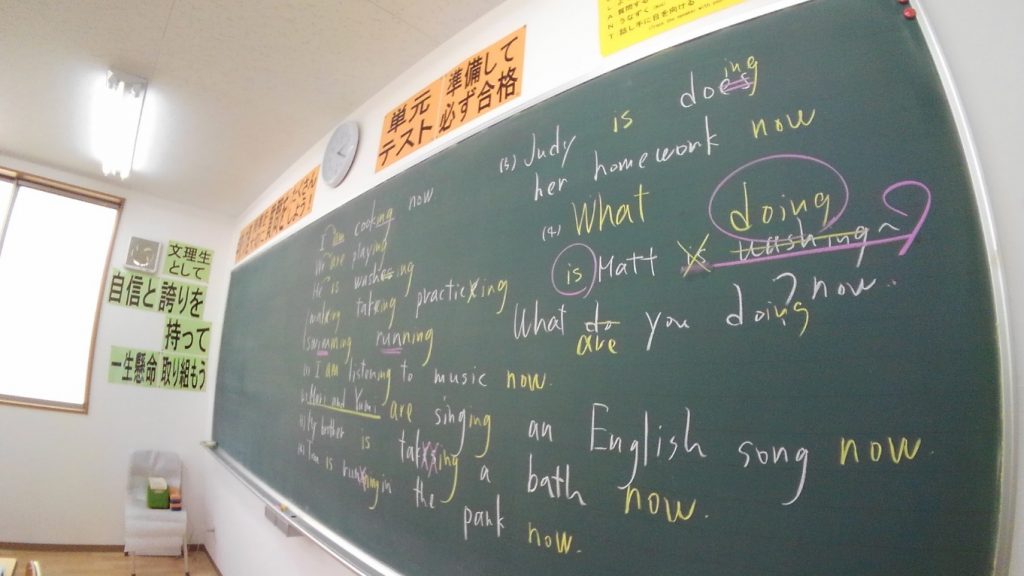 質問する
うなずく
話し手に目を向ける
準備して
必ず合格
単元
テスト
文理生
として
自信と誇りを
持って
一生懸命取り組もう
I am cooking now
are playing
He is washing
making taking practicing
swimming running
I am listening to music now.
Mari and Yumi are singing an English song now
My brother is taking a bath now.
Tom is running in the park now.
(3) Judy is doing
her homework now
(4) What doing
is Matt washing
What do you doing? now.
are